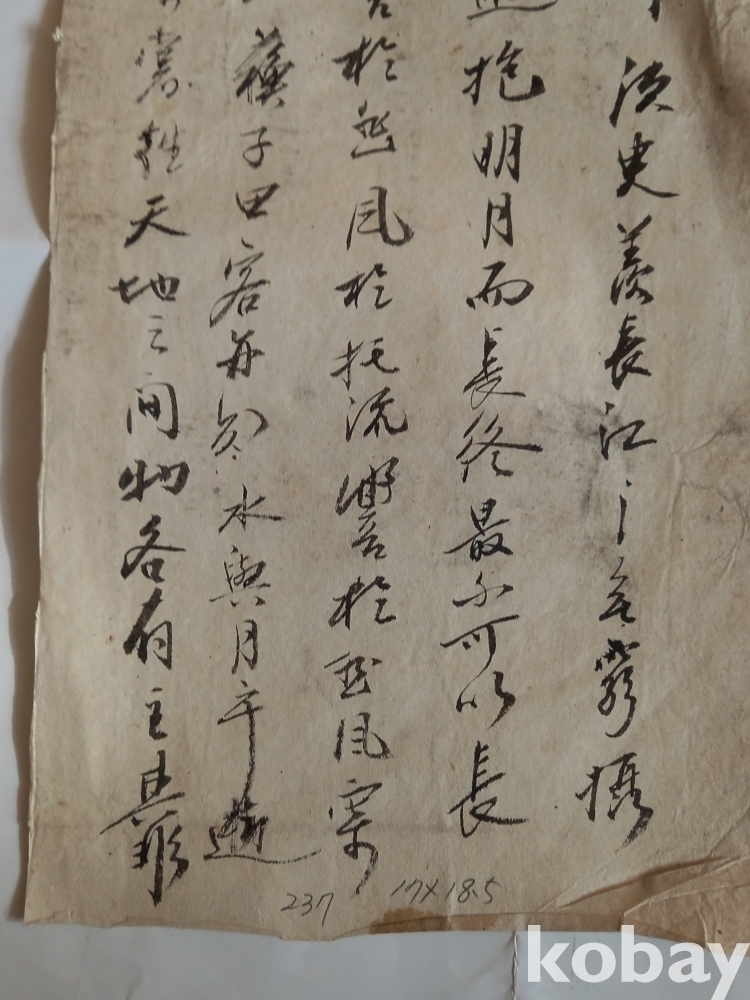 須史羨長江之無窮
抱明月而長終最不可以長
於悲風於托流響於悲風
蘇子曰客亦知水與月乎逝
天地之間物各有主
237 17×18.5
kobay